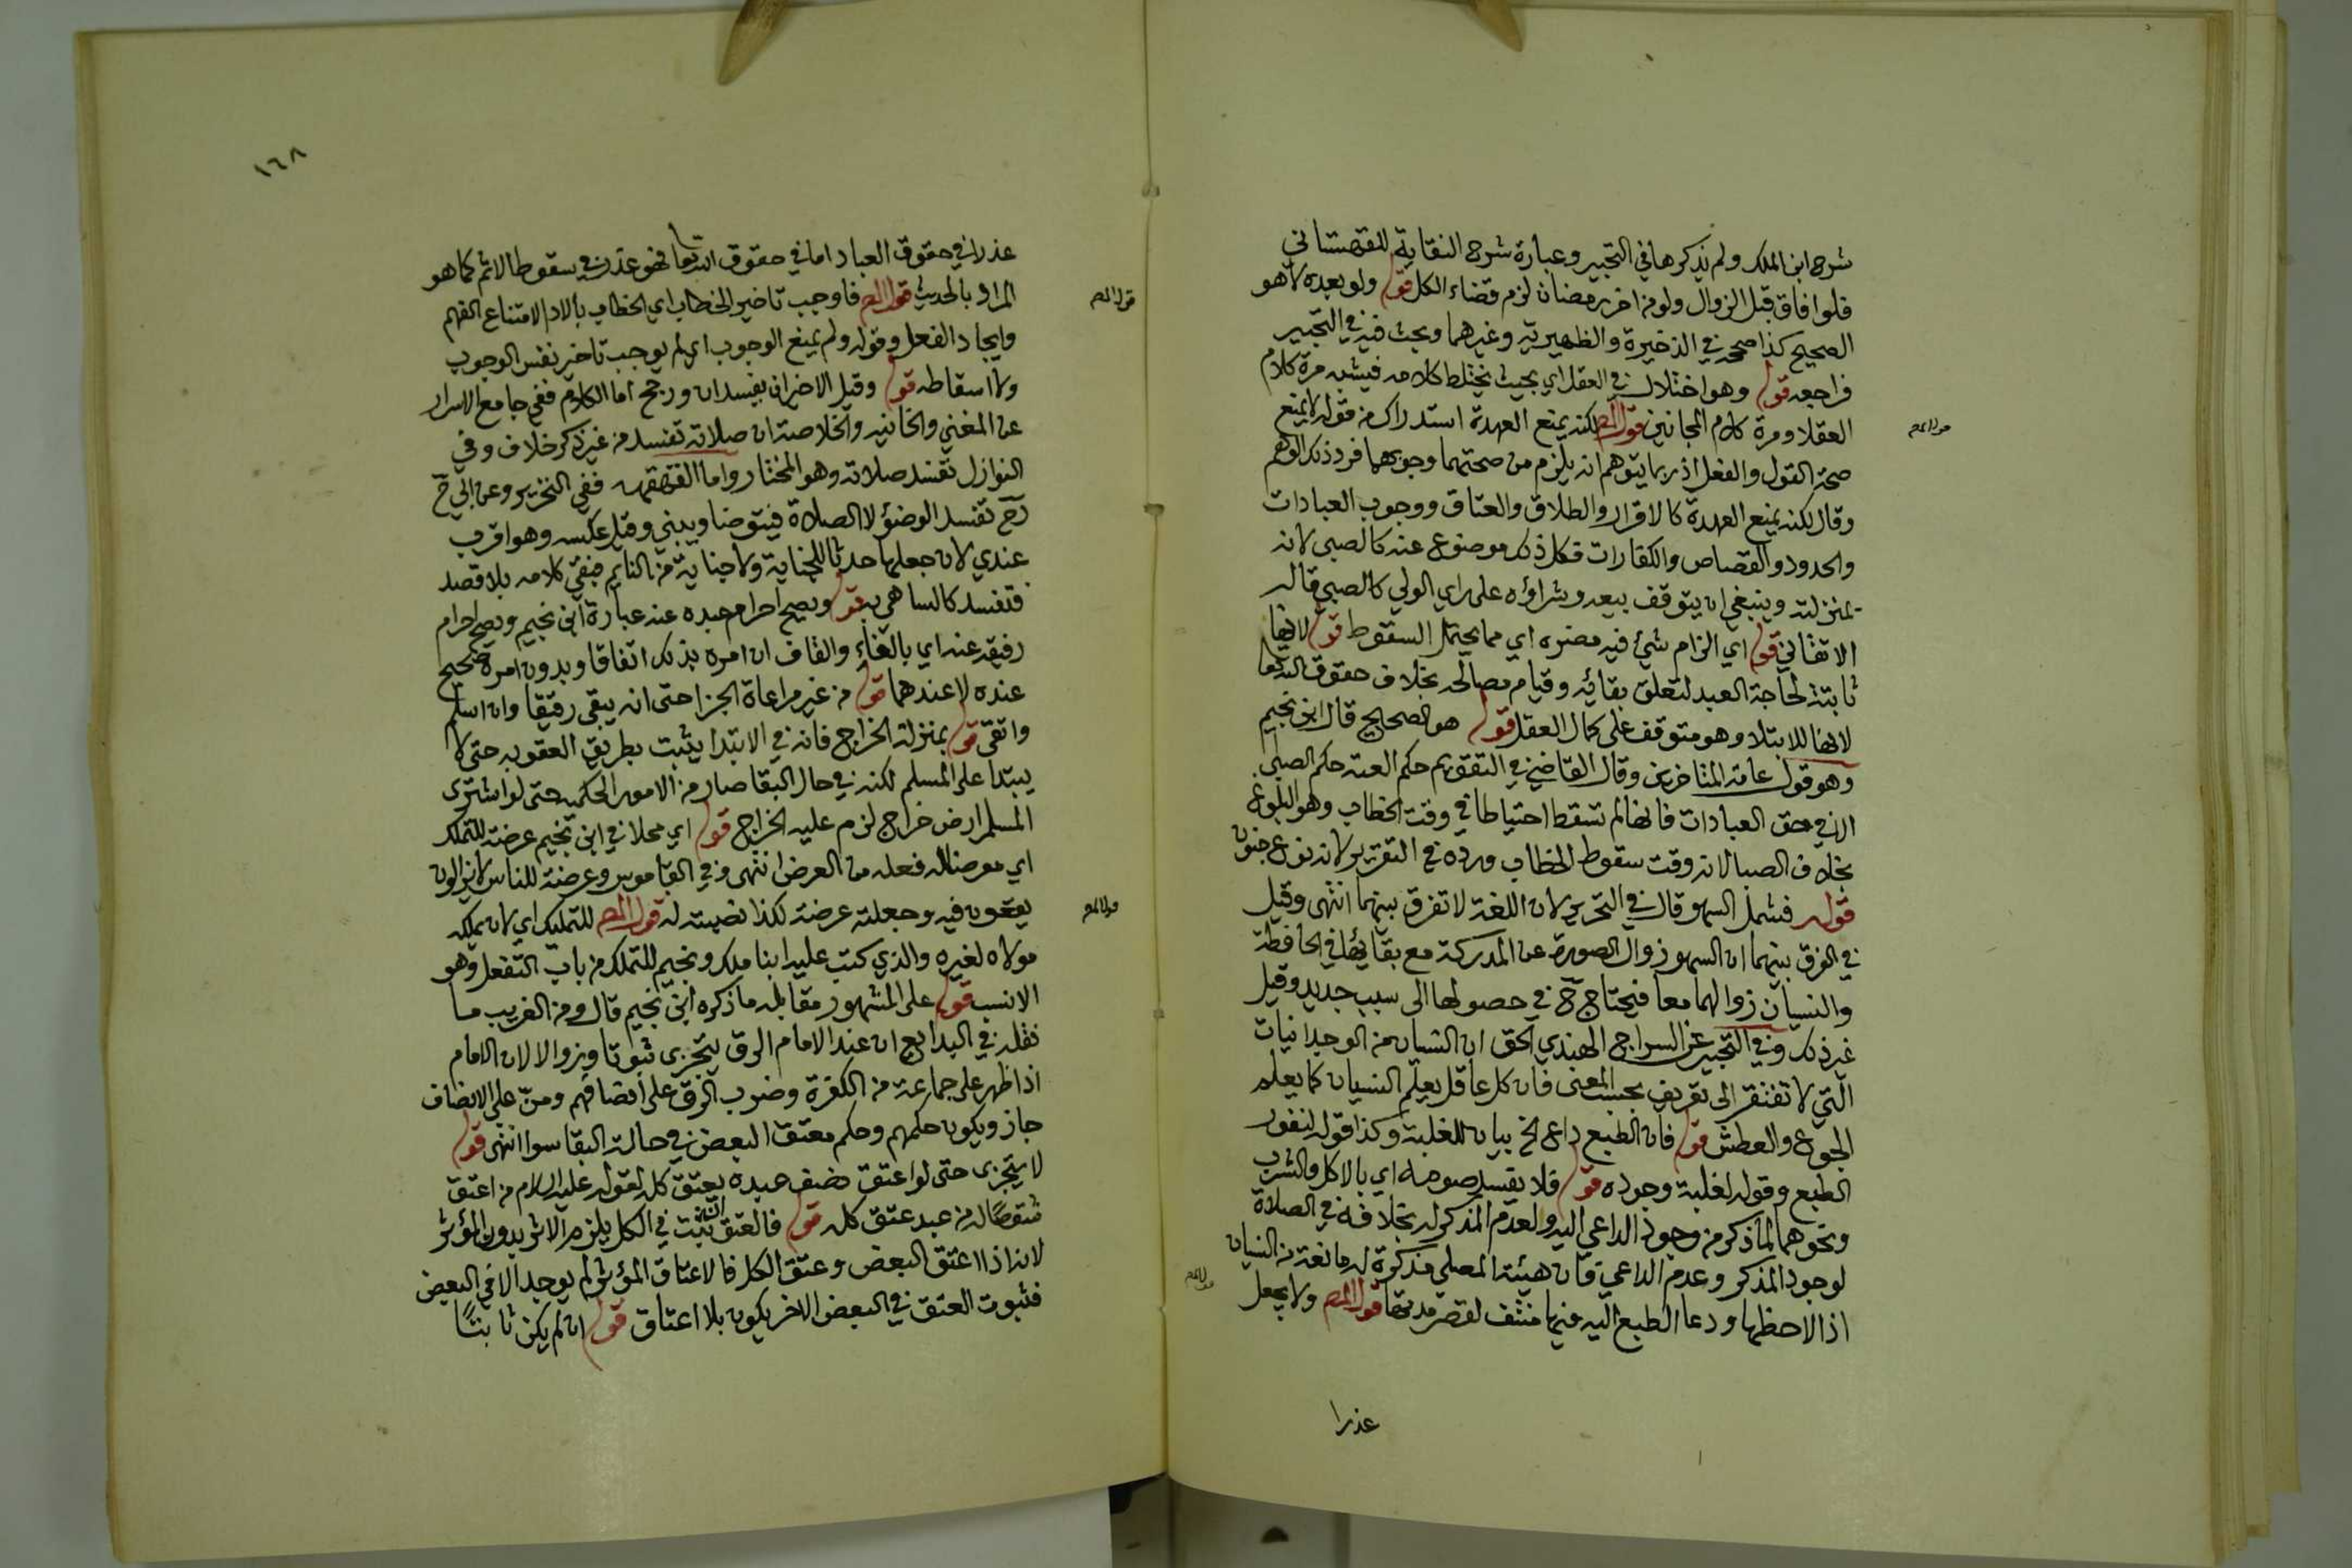 شرح ابن الملك ولم يذكرها في التحبير وعبارة شرح النقاية للقهستاني
فلو افاق قبل الزوال ولو من اخر رمضان لزم قضاء الكل قوله ولو بعده لا هو
الصحيح كذا صححه في الذخيرة والظهيرية وغيرهما وبحث فيه في التحبير
فراجعه قوله وهو اختلال في العقل اي بحيث يختلط كلامه فيشبه مرة كلام
العقلا ومرة كلام المجانين قول المص لكنه يمنع العهدة استدراك من قوله لا يمنع
صحة القول والفعل اذ ربما يتوهم انه يلزم من صحتهما وجوبهما فرد ذلك الوهم
وقال لكنه يمنع العهدة كالاقرار والطلاق والعتاق ووجوب العبادات
والحدود والقصاص والكفارات فكل ذلك موضوع عنه كالصبي لانه
بمنزلته وينبغي ان يتوقف بيعه وشراؤه على راي الولي كالصبي قاله
الاتقاني قوله اي الزام شيئ فيه مضره اي مما يحتمل السقوط قوله لانها
ثابتة لحاجة العبد لتعلق بقائه وقيام مصالحه بخلاف حقوق الله تعا
لانها للابتلا وهو متوقف على كمال العقل قوله هو الصحيح قال ابن نجيم
وهو قول عامة المتاخرين وقال القاضي في التقويم حكم العته حكم الصبي
الا في حق العبادات فانها لم تسقط احتياطا في وقت الخطاب وهو البلوغ
بخلاف الصبا لانه وقت سقوط الخطاب ورده في التقرير لانه نوع جنون
قوله فشمل السهو قال في التحرير لان اللغة لا تفرق بينهما انتهى وقيل
في الفرق بينهما ان السهو زوال الصورة عن المدركة مع بقائها في الحافظة
والنسيان زوالهما معا فيحتاج ح في حصولها الى سبب جديد وقيل
غير ذلك وفي التحبير عن السراج الهندي الحق ان النسيان من الوجدانيات
التي لا تفتقر الى تعريف بحسب المعنى فان كل عاقل يعلم النسيان كما يعلم
الجوع والعطش قوله فان الطبع داع الخ بيان للغلبة وكذا قوله لنفور
الطبع وقوله لغلبة وجوده قوله فلا يفسد صومه اي بالاكل والشرب
ونحوهما لما ذكر من وجود الداعي اليه ولعدم المذكر له بخلافه في الصلاة
لوجود المذكر وعدم الداعي فان هيئة المصلي مذكرة له مانعة من النسيان
اذا لاحظها ودعا الطبع اليه فيها منتف لقصر مدتها قول المص ولا يجعل
عذرا
١٦٨
عذرا في حقوق العباد اما في حقوق الله تعا فهو عذر في سقوط الاثم كما هو
المراد بالحديث قول المص فاوجب تاخير الخطاب اي الخطاب بالاداء لامتناع الفهم
وايجاد الفعل وقوله ولم يمنع الوجوب اي لم يوجب تاخير نفس الوجوب
ولا اسقاطه قوله وقيل الاخيران يفسدان ورجح اما الكلام ففي جامع الاسرار
عن المغني والخانيه والخلاصة ان صلاته تفسد من غير ذكر خلاف وفي
النوازل تفسد صلاته وهو المختار واما القهقهه ففي التحرير وعن ابي ح
رح تفسد الوضؤ لا الصلاة فيتوضا ويبني وقيل عكسه وهو اقرب
عندي لان جعلها حدثا للجناية ولا جناية من النايم فبقي كلامه بلا قصد
فتفسد كالساهي به قوله ويصح احرام عبده عنه عبارة ابن نجيم ويصح احرام
رفيقه عنه اي بالفاء والقاف ان امره بذلك اتفاقا وبدون امره صحيح
عنده لا عندهما قوله من غير مراعاة الجزا حتى انه يبقى رقيقا وان اسلم
واتقى قوله بمنزلة الخراج فانه في الابتدا يثبت بطريق العقوبه حتى لا
يبتدا على المسلم لكنه في حال البقا صار من الامور الحكمية حتى لو اشترى
المسلم ارض خراج لزم عليه الخراج قوله اي محلا في ابن نجيم عرضة للتملك
اي معرضا له فعله من العرض انتهى وفي القاموس وعرضة للناس لا يزالون
يقعون فيه وجعلته عرضة لكذا نصبته له قول المص للتمليك اي لان يملكه
مولاه لغيره والذي كتب عليه ابنا ملك ونجيم للتملك من باب التفعل وهو
الانسب قوله على المشهور مقابله ما ذكره ابن نجيم قال ومن الغريب ما
نقله في البدايع ان عند الامام الرق يتجزى ثبوتا وزوالا لان الامام
اذا ظهر على جماعة من الكفرة وضرب الرق على انصافهم ومنّ على الانصاف
جاز ويكون حكمهم وحكم معتق البعض في حالة البقا سوا انتهى قوله
لا يتجزى حتى لو اعتق نصف عبده يعتق كله لقوله عليه السلام من اعتق
شقصًا له من عبد عتق كله قوله فالعتق يثبت في الكل يلزم الاثر بدون المؤثر
لانه اذا اعتق البعض وعتق الكل فالاعتاق المؤثر لم يوجد الا في البعض
فثبوت العتق في البعض الاخر يكون بلا اعتاق قوله ان لم يكن ثابتًا